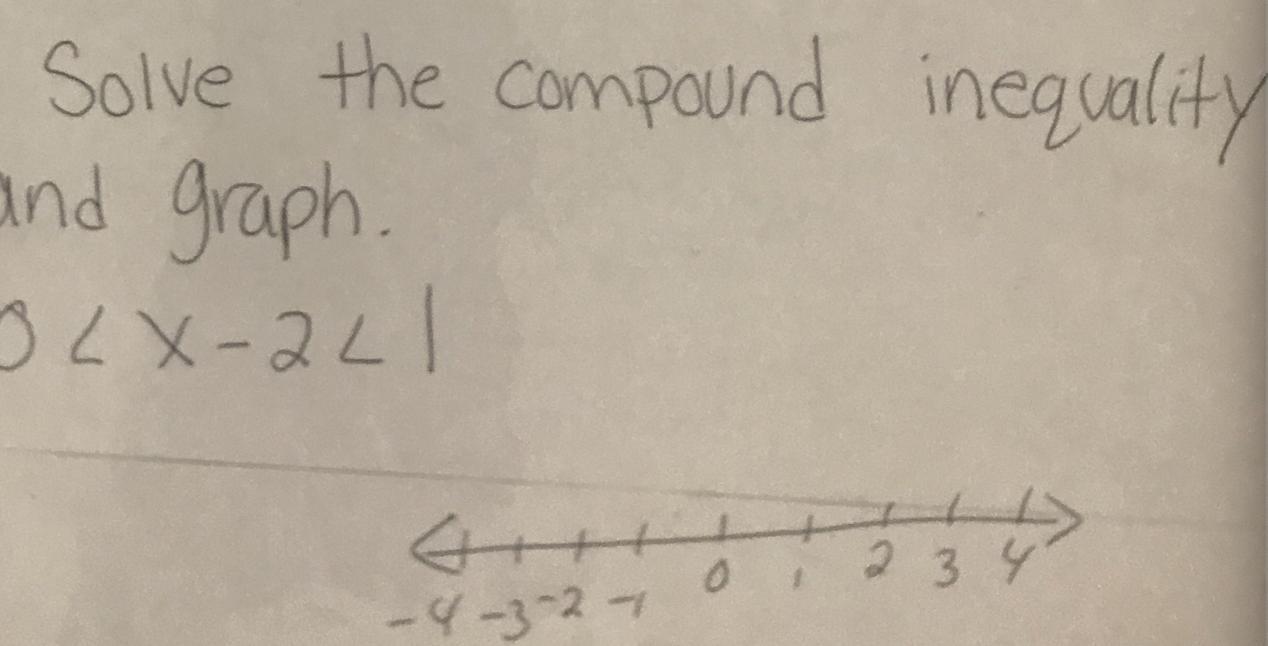 Solve the compound inequality
and graph.
0 < x - 2 < 1
-4 -3 -2 -1 0 1 2 3 4